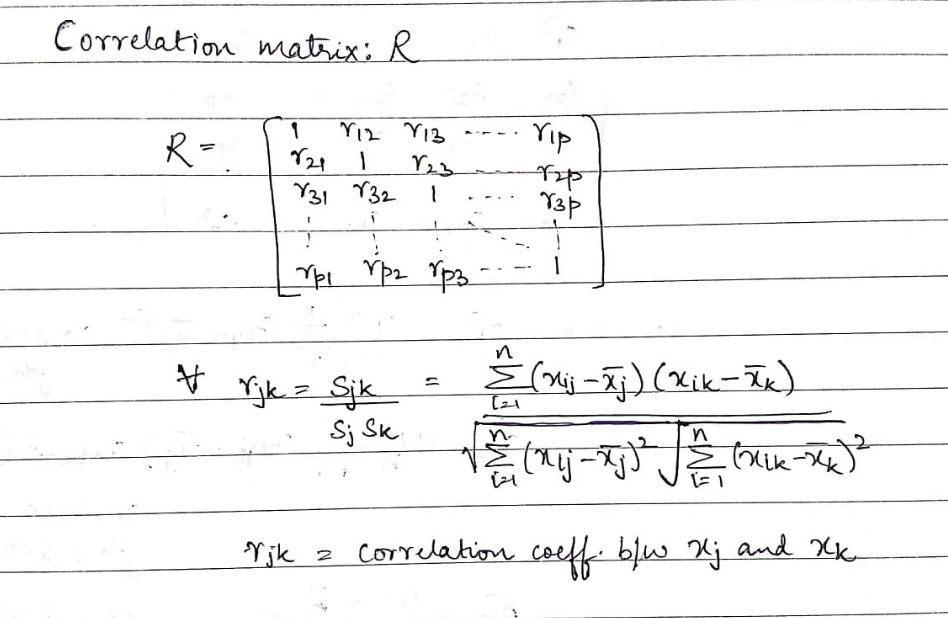 Correlation matrix: R
R = [ 1 r12 r13 ----- r1p
r21 1 r23 ----- r2p
r31 r32 1 ---- r3p
⋮ ⋮ ⋮ ⋱ ⋮
rp1 rp2 rp3 ---- 1 ]
∀ rjk = Sjk / Sj Sk = Σ_{i=1}^{n} (xij − x̄j) (xik − x̄k) / √(Σ_{i=1}^{n} (xij − x̄j)²) √(Σ_{i=1}^{n} (xik − x̄k)²)
rjk = correlation coeff. b/w xj and xk